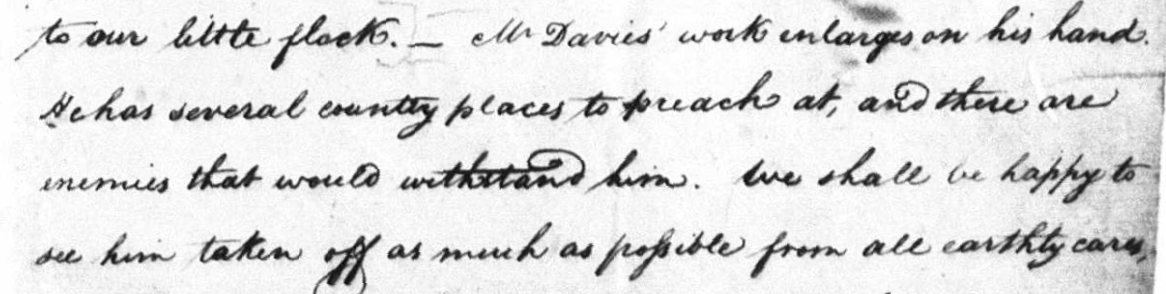 to our little flock. — Mr Davies' work enlarges on his hand.
He has several country places to preach at, and there are
enemies that would withstand him. We shall be happy to
see him taken off as much as poſsible from all earthly cares,